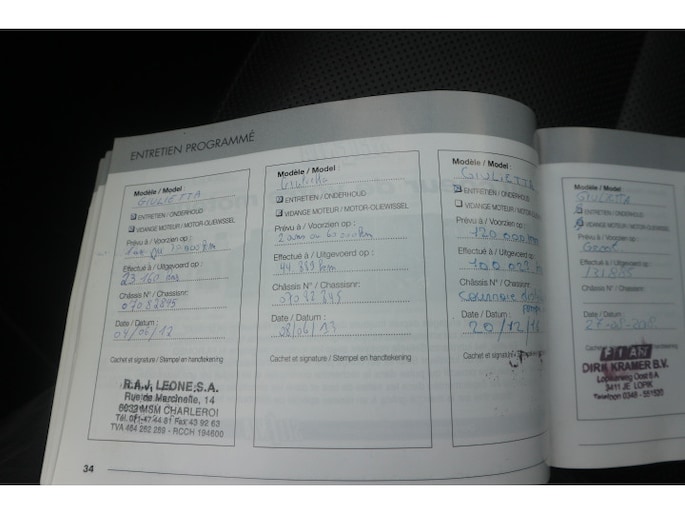 ENTRETIEN PROGRAMMÉ
Modèle / Model :
GIULIETTA
ENTRETIEN / ONDERHOUD
VIDANGE MOTEUR / MOTOR-OLIEWISSEL
Prévu à / Voorzien op :
Effectué à / Uitgevoerd op :
23 160
Châssis N° / Chassisnr:
07082845
Date / Datum :
04/06/12
Cachet et signature / Stempel en handtekening
R.A.J. LEONE S.A.
Rue de Marcinelle, 14
6032 MSM CHARLEROI
Tél. 071.47 44 81 Fax 43 92 63
TVA 464 282 289 - RCCH 194600
34
Modèle / Model :
Giulietta
ENTRETIEN / ONDERHOUD
VIDANGE MOTEUR / MOTOR-OLIEWISSEL
Prévu à / Voorzien op :
2 ans ou 60 000 km
Effectué à / Uitgevoerd op :
44 359 km
Châssis N° / Chassisnr:
07082845
Date / Datum :
08/06/13
Cachet et signature / Stempel en handtekening
Modèle / Model :
GIULIETTA
ENTRETIEN / ONDERHOUD
VIDANGE MOTEUR / MOTOR-OLIEWISSEL
Prévu à / Voorzien op :
120 000 km
Effectué à / Uitgevoerd op :
Châssis N° / Chassisnr:
Date / Datum :
20/12/
Cachet et signature
Modèle / Model :
GIULIETTA
ENTRETIEN / ONDERHOUD
VIDANGE MOTEUR / MOTOR-OLIEWISSEL
Prévu à / Voorzien op :
Effectué à / Uitgevoerd op :
131885
Châssis N° / Chassisnr:
Date / Datum :
FIAT
DIRK KRAMER B.V.
Lopikerweg Oost 6 A
3411 JE LOPIK
Telefoon 0348 - 551520